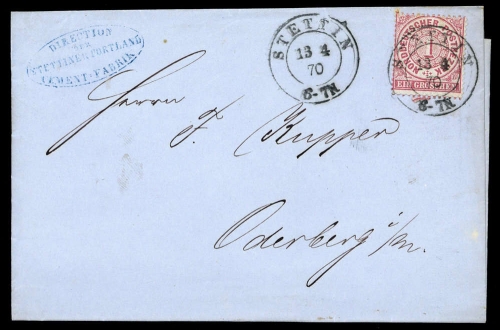 DIRECTION
der
STETTINER PORTLAND
CEMENT FABRIK
STETTIN
13 4
70
6-7N
NORDDEUTSCHER POSTBEZIRK
1
EIN GROSCHEN
STETTIN
13 4
70
6-7N
Herrn
F. Kupper
Oderberg i/m.